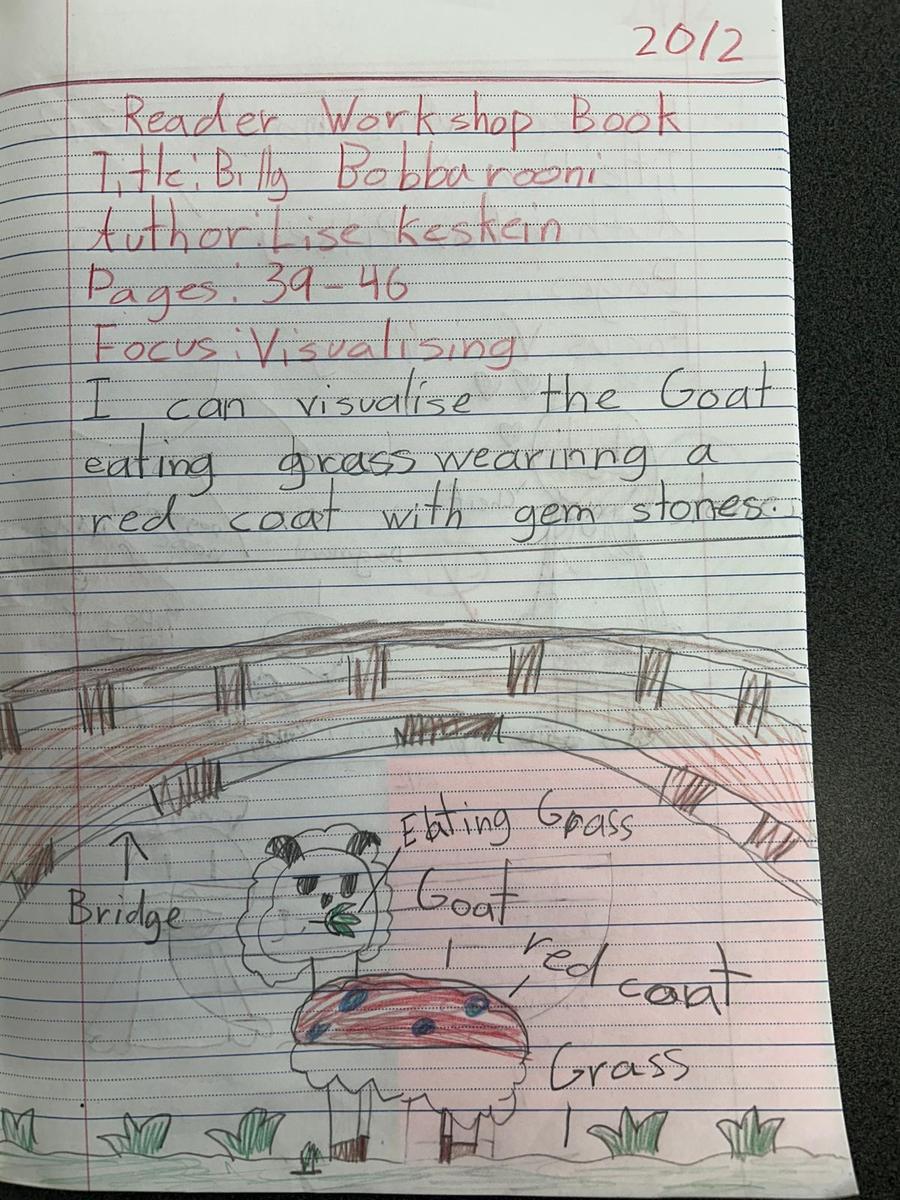 20/2
Reader Workshop Book
Title: Billy Bobbarooni
Author: Lise Keskein
Pages: 39-46
Focus: Visualising
I can visualise the Goat
eating grass wearinng a
red coat with gem stones.
Eating Grass
Bridge
Goat
red coat
Grass